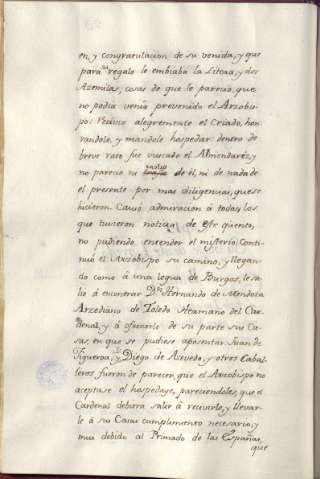 en, y congratulacion de su venida, y que
para su regalo le embiaba la Litera, y dos
Azemilas, cosas de que le pareciò, que
no podia venir prevenido el Arzobis-
po: Recivio alegremente el Criado, hon-
randole, y mandole hospedar: dentro de
breve rato fue buscado el Almendarez, y
no pareciò ni rastro de él, ni de nada de
el presente por mas diligencias, que se
hicieron. Causò admiracion à todos los
que tuvieron noticia de este quento,
no pudiendo entender el misterio. Conti-
nuò el Arzobispo su camino, y llegan-
do como à una legua de Burgos, le sa-
liò à encontrar Dn. Hernando de Mendoza
Arzediano de Toledo Hermano del Car-
denal, y à ofrecerle de su parte sus Ca-
sas, en que se pudiese aposentar Juan de
Figueroa, y Diego de Azevedo, y otros Cabal-
leros fueron de parecer, que el Arzobispo no
aceptase el hospedage, pareciendoles, que el
Cardenal debiera salir à recivirle, y llevar-
le à sus Casas cumplimiento necesario, y
mui debido al Primado de las Españas,
que